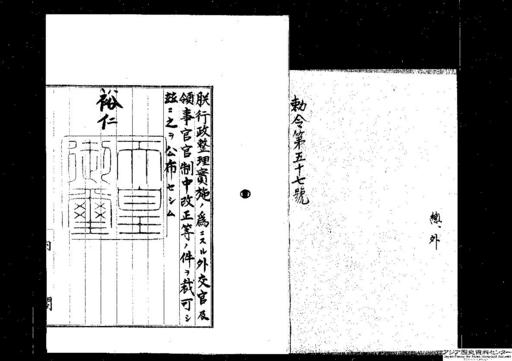 勅令第五十七號
朕行政整理實施ノ爲ニスル外交官及
領事官官制中改正等ノ件ヲ裁可シ
玆ニ之ヲ公布セシム
裕仁
天皇
御璽
内閣
アジア歴史資料センター